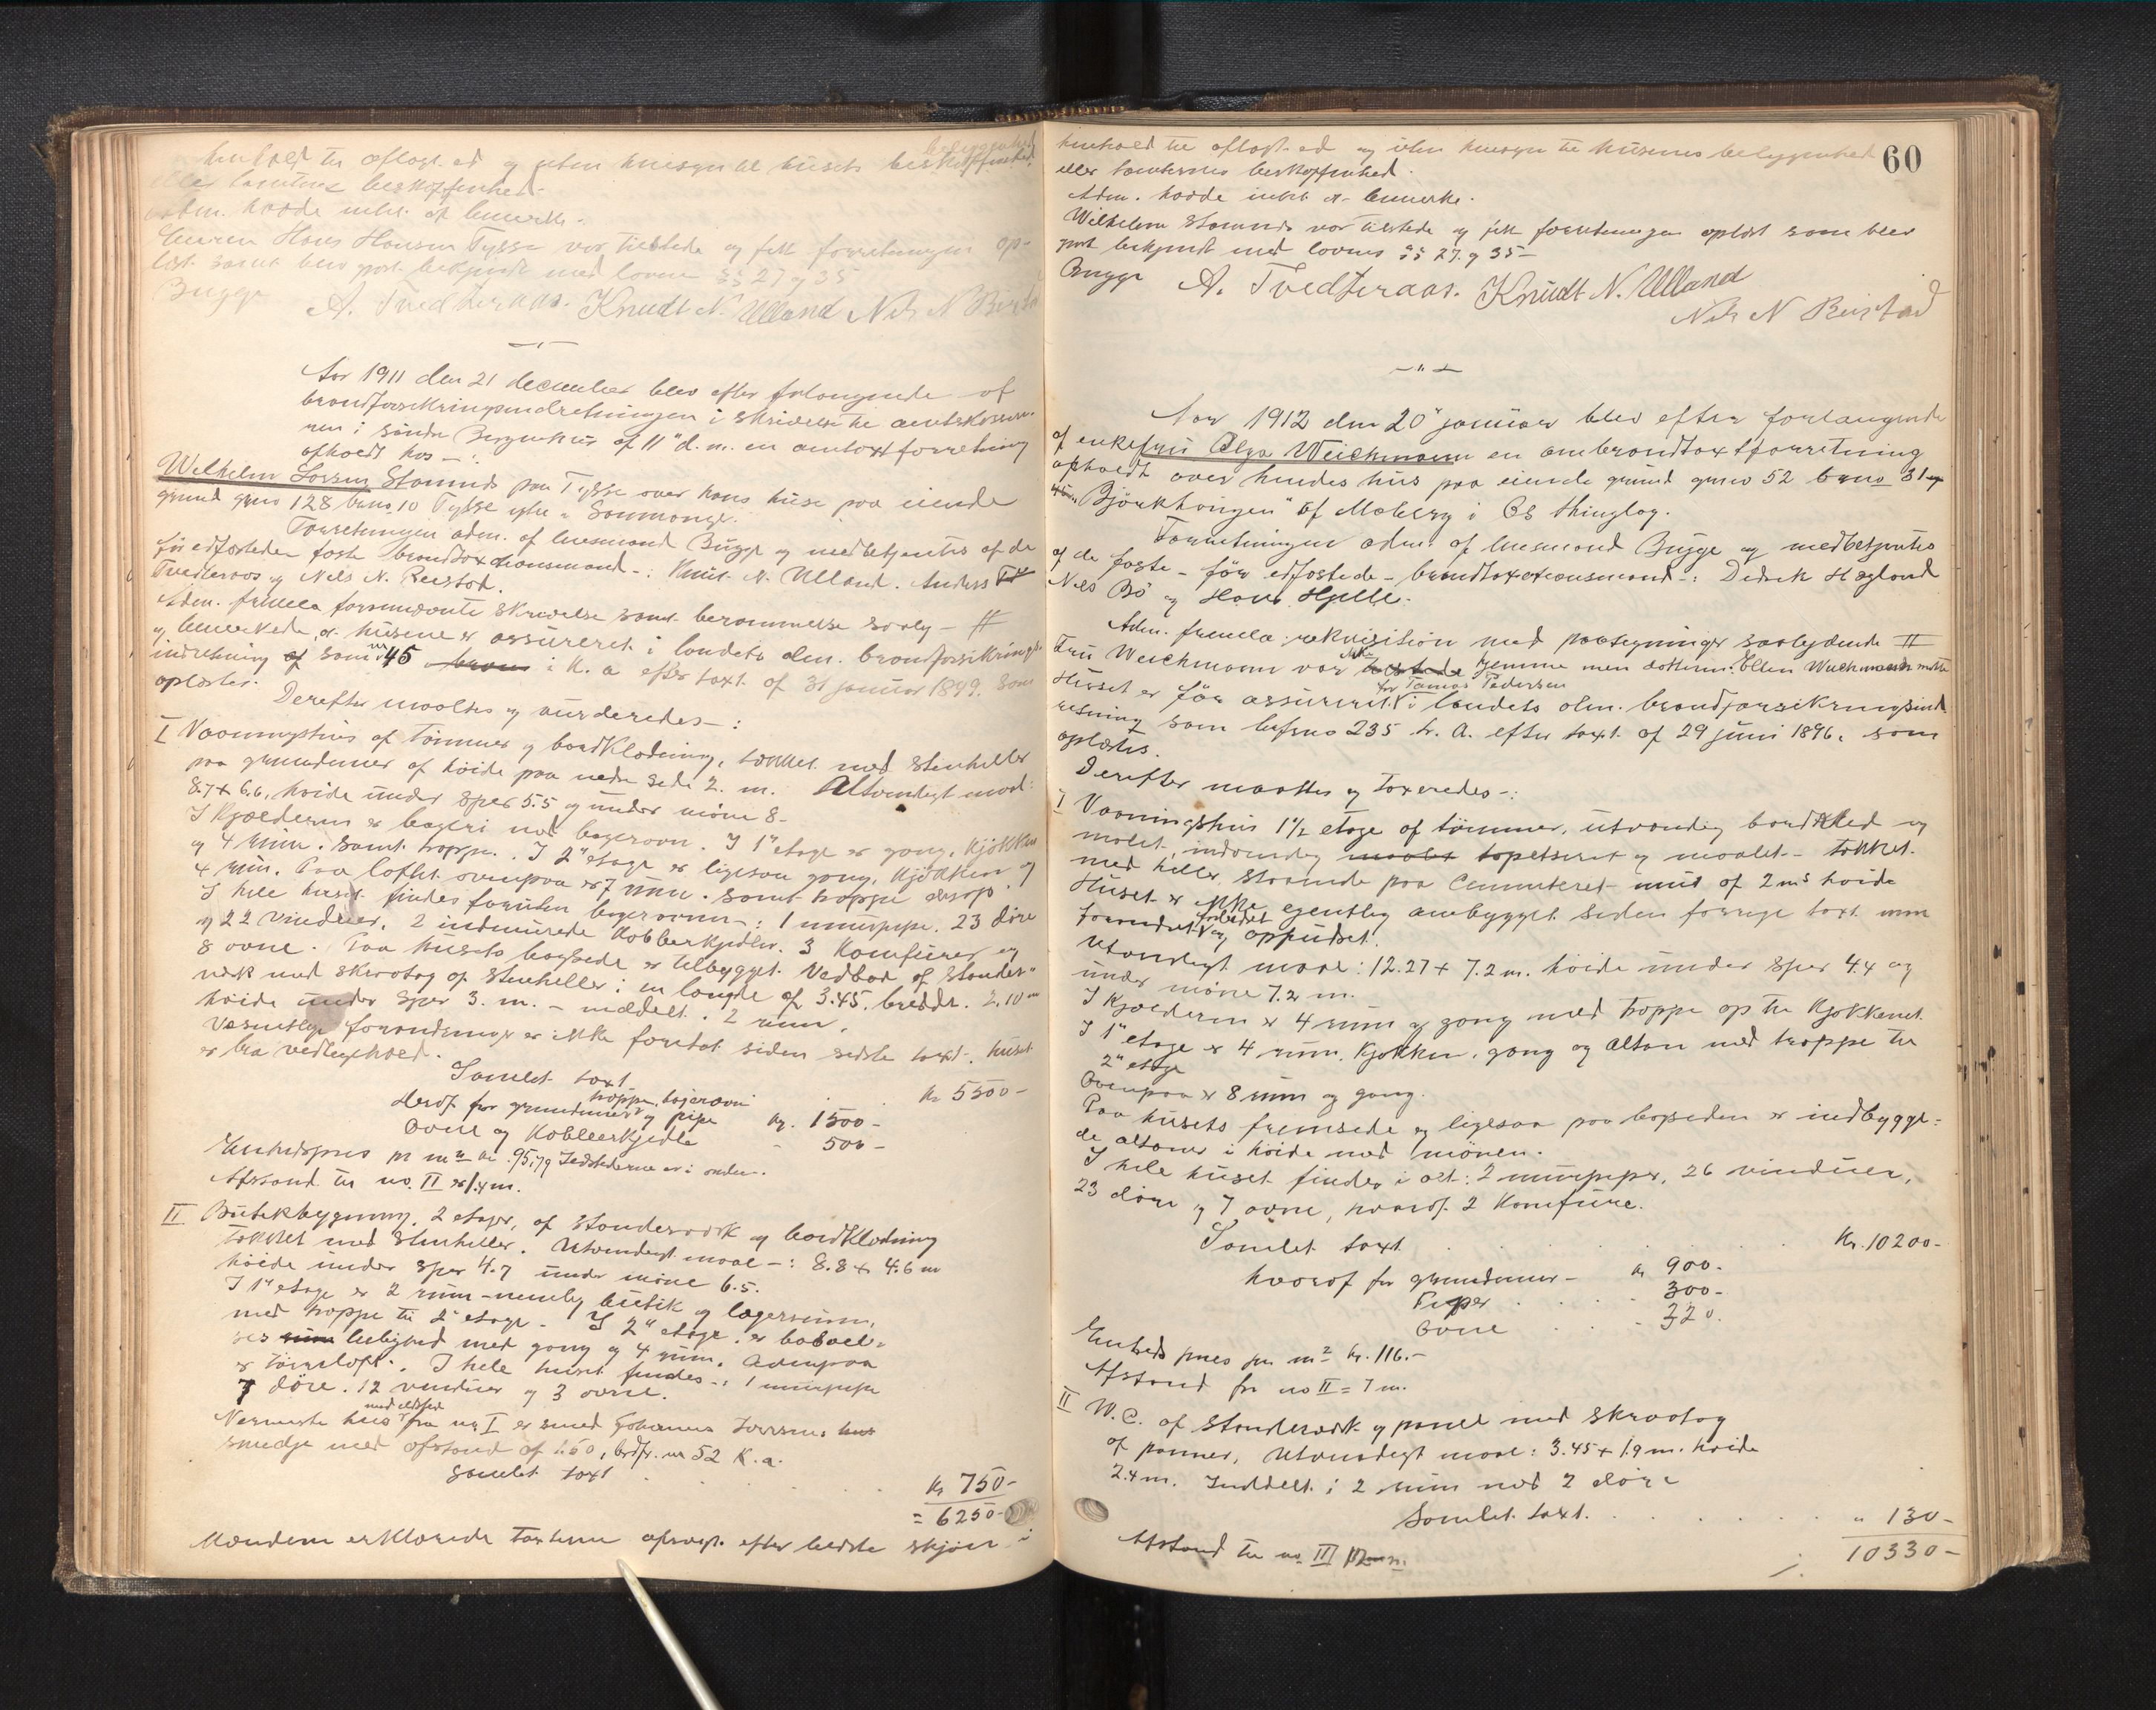 beliggenhed
henhold til aflagt ed og uten hensyn til husets beskaffenhed
eller tomtens beskaffenhed.
Adm. hadde intet at bemerke.
Eieren Hans Hansen Tysse var tilstede og fik forretningen op-
læst samt blev gjort bekjendt med lovens §§ 27 og 35
Bugge A. Tvedteraas. Knudt N. Ulland Nils N Reistad
Aar 1911 den 21 december blev efter forlangende af
brandforsikringsindretningen i skrivelse til amtskasser-
ren i søndre Bergenhus af 11" d.m. en omtaxtforretning
afholdt hos -:
Wilhelm Larsen Stomnæs paa Tysse over hans huse paa eiende
grund gno 128 bno 10 Tysse ytre i Samnanger.
Forretningen adm. af lensmand Bugge og medbetjentes af de
før edfæstede faste brandtaxtationsmænd -: Knut N. Ulland. Anders
Tvedteraas og Nils N. Reistad.
Adm. fremla foranstaaende skrivelse samt berammelse saaly - #
og bemerkede, at husene er assureret i landets alm. brandforsikrings-
indretning som nr 45 i K. a efter taxt af 31 januar 1899. som
oplæstes.
Derefter maaltes og vurderedes -:
I Vaaningshus af tømmer og bordklædning, tækket med stenheller
paa grundmur af høide paa nedre side 2. m. Utvendigt maal:
8.7 + 6.6, høide under sper 5.5 og under møne 8-
I Kjælderen er bageri med bagerovn. I 1" etage er gang, kjøkken
og 4 rum. samt trappe. I 2" etage er ligesaa gang, kjøkken og
4 rum. Paa loftet ovenpaa er 7 rum. samt trappe derop.
I hele huset findes foruten bagerovnen -: 1 murpipe. 23 døre
og 22 vinduer, 2 indmurede kobberkjedler. 3 komfurer og
8 ovne. Paa husets bagside er tilbygget Vedbod af stender-
værk med skraatag af stenheller i en længde af 3.45. bredde. 2.10 m
høide under sper 3. m. - inddelt i 2 rum.
Væsentlige forandringer er ikke foretat siden sidste taxt. huset
er bra vedligeholdt.
Samlet taxt . . kr 5500-
trappe, bagerovn
Heraf for grundmur og pipe kr. 1500-
Ovne og Kobberkjedle - 500-
Enhedspris pr m² kr. 95,79 Ildstederne er i orden.
Afstand til no. II er 1.4 m.
II Butikbygning, 2 etager, af stenderværk og bordklædning
tækket med stenheller. Utvendigt maal -: 8.8 + 4.6 m
høide under sper 4.7 under møne 6.5.
I 1" etage er 2 rum - nemlig butik og lagerrum,
med trappe til 2" etage. I 2" etage. er beboel-
ses leilighed med gang og 4 rum. Ovenpaa
er tørreloft. I hele huset findes -: 1 murpipe
7 døre. 12 vinduer og 3 ovne.
med ildsted
Nærmeste hus fra no I er smed Johannes Larsens
smedje med afstand af 1.50, brdfr. nr 52 K. a.
Samlet taxt . . . kr 750-
= 6250-
Mændene erklærede taxterne afsagt efter bedste skjøn i
60
henhold til aflagt ed og uten hensyn til husenes beliggenhed
eller tomternes beskaffenhed.
Adm. hadde intet at bemerke.
Wilhelm Stomnæs var tilstede og fik forretningen oplæst som blev
gjort bekjendt med lovens §§ 27. og 35-
Bugge A. Tvedteraas. Knudt N. Ulland
Nils N Reistad
Aar 1912 den 20" januar blev efter forlangende
af enkefru Olga Weichmann en ombrandtaxtforretning
afholdt over hendes hus paa eiende grund gno 52 bno 31 af
"Bjørkhaugen" af Moberg i Os thinglag.
Forretningen adm. af lensmand Bugge og medbetjentes
af de faste - før edfæstede - brandtaxationsmænd -: Didrik Hegland
Nils Bø og Hans Hjelle.
Adm. fremla rekvisition med paategninger saalydende #
Fru Weichmann var ikke hjemme men datteren Ellen Weichmann møtte
for Tomas Pedersen
Huset er før assureret i landets alm. brandforsikringsind-
retning som brfrno 235 K. A. efter taxt af 29 juni 1896. som
oplæstes.
Derefter maaltes og taxeredes -:
I Vaaningshus 1 1/2 etage af tømmer, utvendig bordklæd og
malet, indvendig tapetseret og maalet - tækket
med heller, staaende paa cementeret mur af 2 ms høide
Huset er ikke egentlig ombygget siden forrige taxt men
forbedret
forandret og oppudset.
Utvendigt maal: 12.27 + 7.2 m. høide under sper 4.4 og
under møne 7.2 m.
I Kjælderen er 4 rum og gang med trappe op til kjøkkenet.
I 1" etage er 4 rum, kjøkken, gang og altan med trappe til
2" etage
Ovenpaa er 8 rum og gang.
Paa husets fremside og ligesaa paa bagsiden er indbygge-
de altaner i høide med mønen.
I hele huset findes i alt: 2 murpiper, 26 vinduer,
23 døre og 7 ovne, hvoraf 2 komfure.
Samlet taxt . . . . Kr. 10200-
hvoraf for grundmur - kr 900-
Piper . . . - 300-
Ovne . . - 320.
Enheds pris pr. m² kr. 116.-
Afstand fra no II = 7 m.
II W.C. af stenderværk og panel med skraatag
af panner, Utvendigt maal: 3.45 + 1.9 m. høide
2.4 m. Inddelt i 2 rum med 2 døre
Samlet taxt. . . . . " 130-
10330-
Afstand til no. III